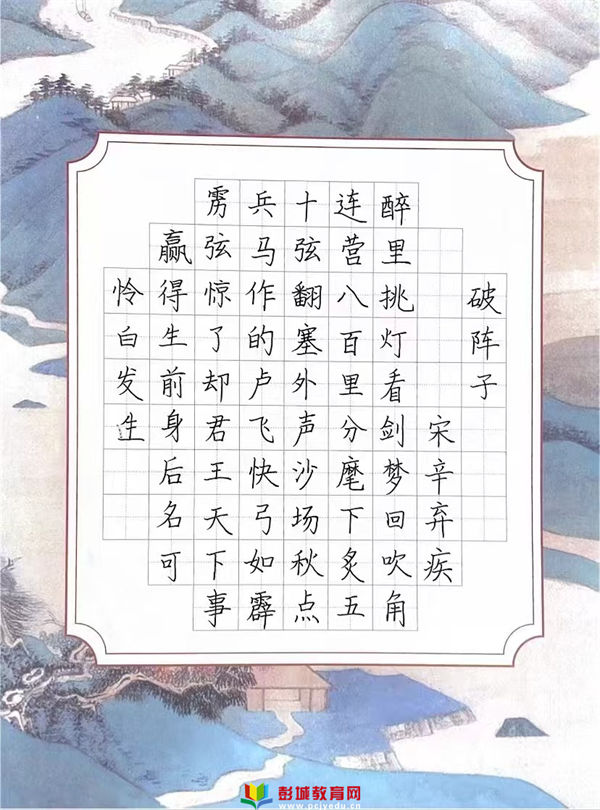 破阵子
宋辛弃疾
醉里挑灯看剑梦回吹角
连营八百里分麾下炙五
十弦翻塞外声沙场秋点
兵马作的卢飞快弓如霹
雳弦惊了却君王天下事
赢得生前身后名可
怜白发生
彭城教育网
www.pcjyedu.cn